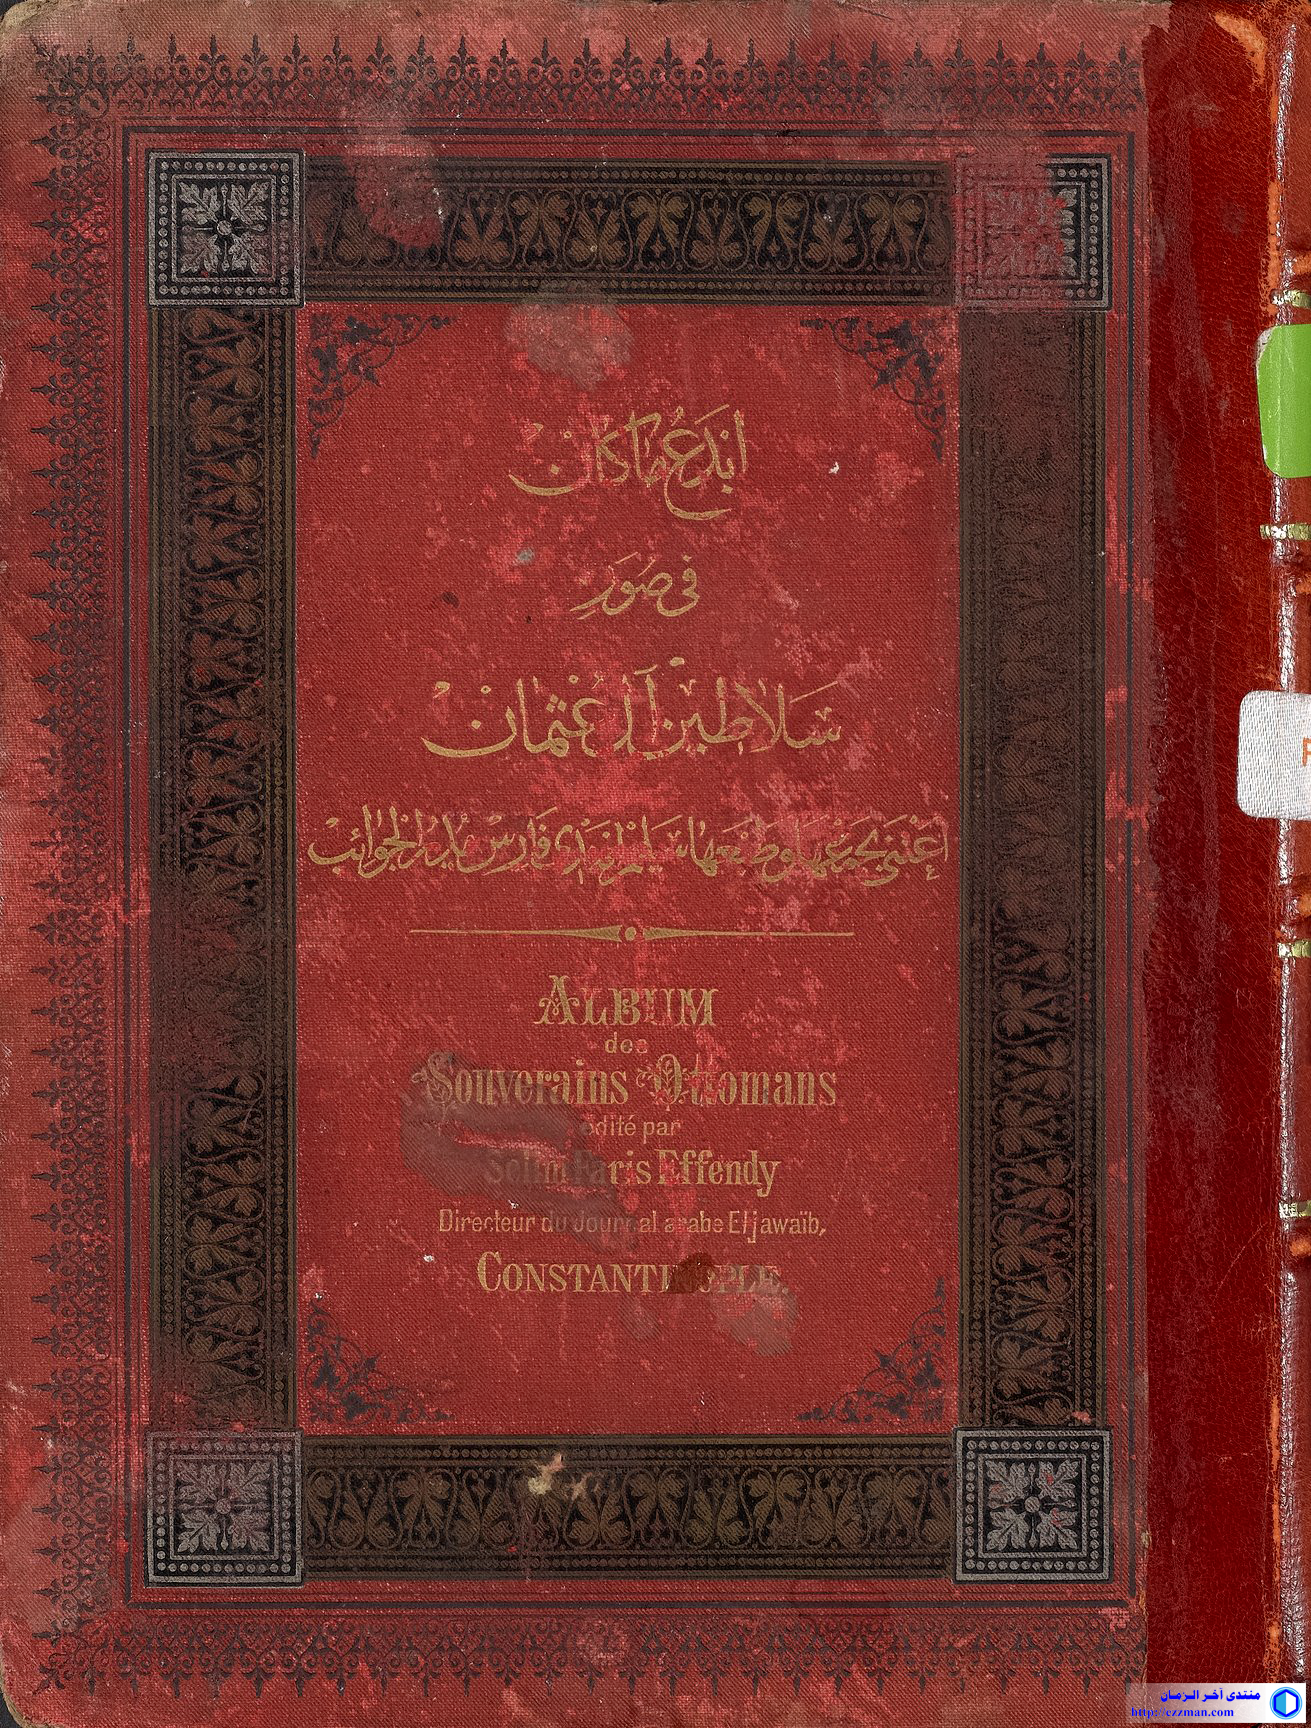 ابدع ما كان
في صور
سلاطين آل عثمان
اعتنى بجمعها وطبعها سليم افندي فارس مدير الجوائب
ALBUM
des
Souverains Ottomans
édité par
Selim Faris Effendy
Directeur du Journal arabe Eljawaïb,
CONSTANTINOPLE.
منتدى آخر الزمان
http://ezzman.com